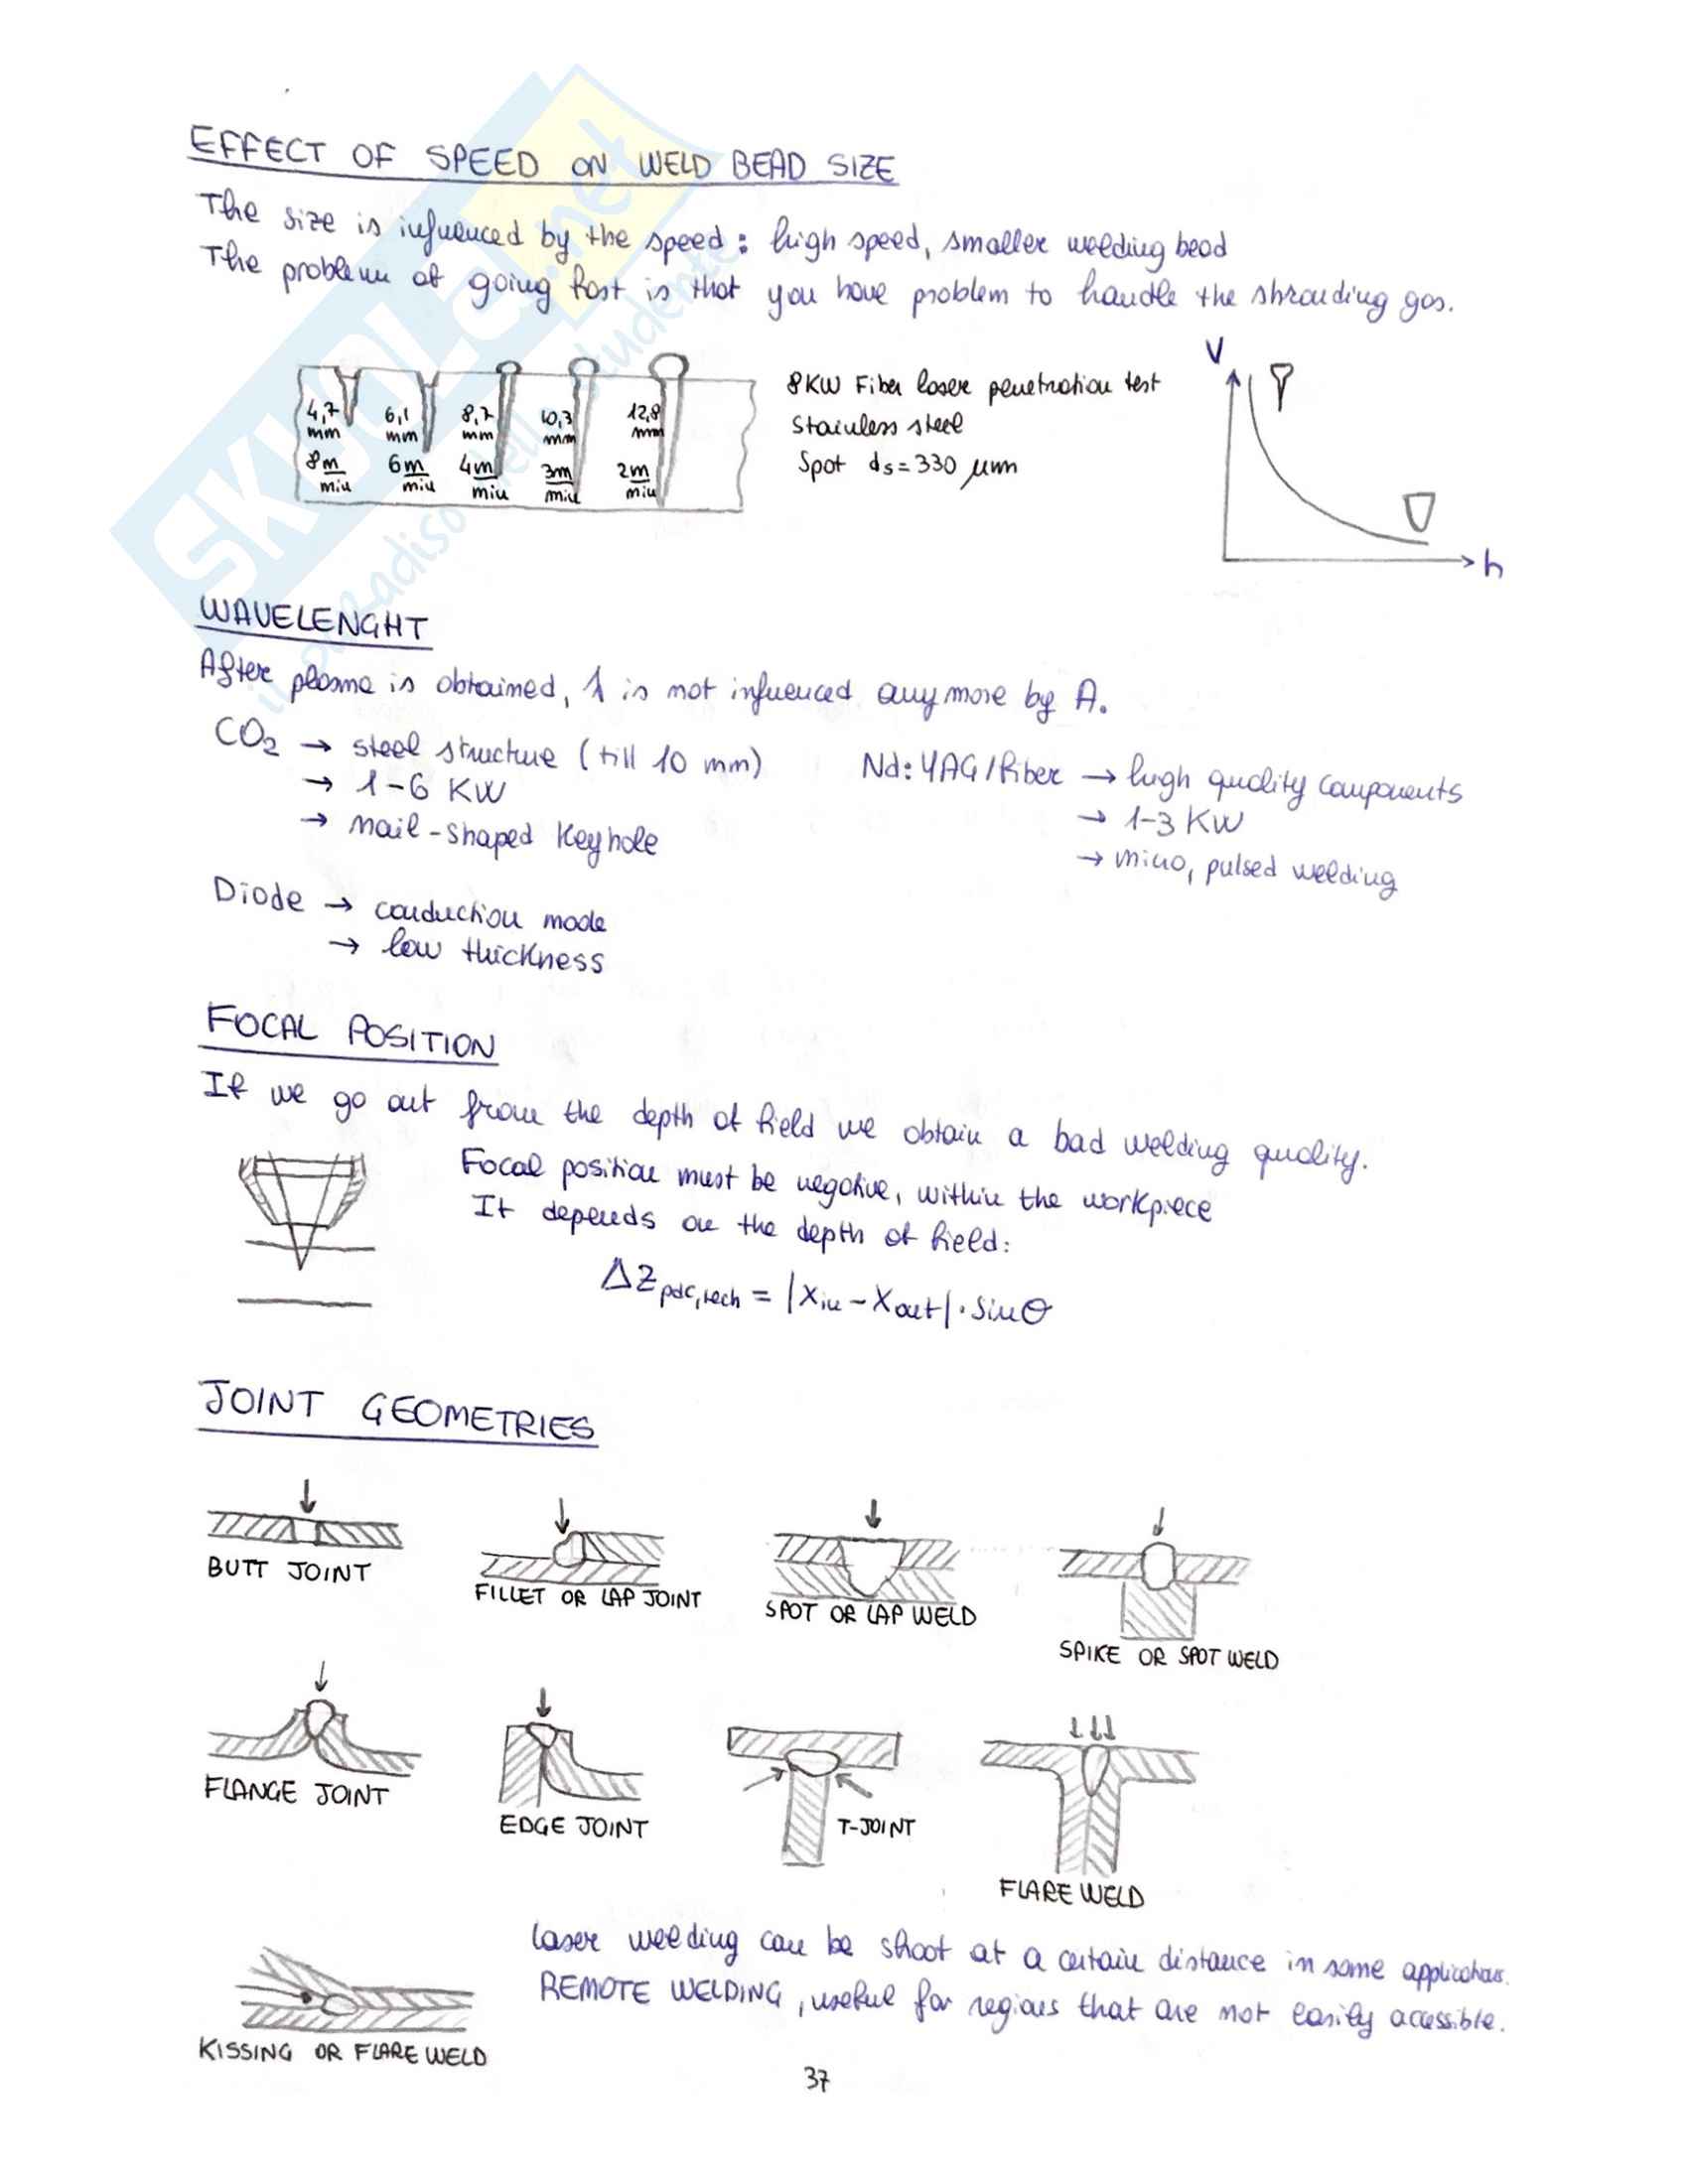 EFFECT OF SPEED ON WELD BEAD SIZE
The size is influenced by the speed: high speed, smaller welding bead
The problem of going fast is that you have problem to handle the shrouding gas.
4,7 mm 6,1 mm 8,7 mm 10,3 mm 12,8 mm
8 m/min 6 m/min 4 m/min 3 m/min 2 m/min
8KW Fiber laser penetration test
Stainless steel
Spot ds = 330 μm
V
h
WAVELENGHT
After plasma is obtained, λ is not influenced anymore by A.
CO2 → steel structure (till 10 mm)
→ 1-6 KW
→ nail-shaped keyhole
Nd:YAG/fiber → high quality components
→ 1-3 KW
→ micro, pulsed welding
Diode → conduction mode
→ low thickness
FOCAL POSITION
If we go out from the depth of field we obtain a bad welding quality.
Focal position must be negative, within the workpiece
It depends on the depth of field:
ΔZpdc,tech = |Xin - Xout| · sinθ
JOINT GEOMETRIES
BUTT JOINT
FILLET OR LAP JOINT
SPOT OR LAP WELD
SPIKE OR SPOT WELD
FLANGE JOINT
EDGE JOINT
T-JOINT
FLARE WELD
KISSING OR FLARE WELD
Laser welding can be shoot at a certain distance in some applications.
REMOTE WELDING, useful for regions that are not easily accessible.
37
SKUOLA.net
il paradiso dello studente